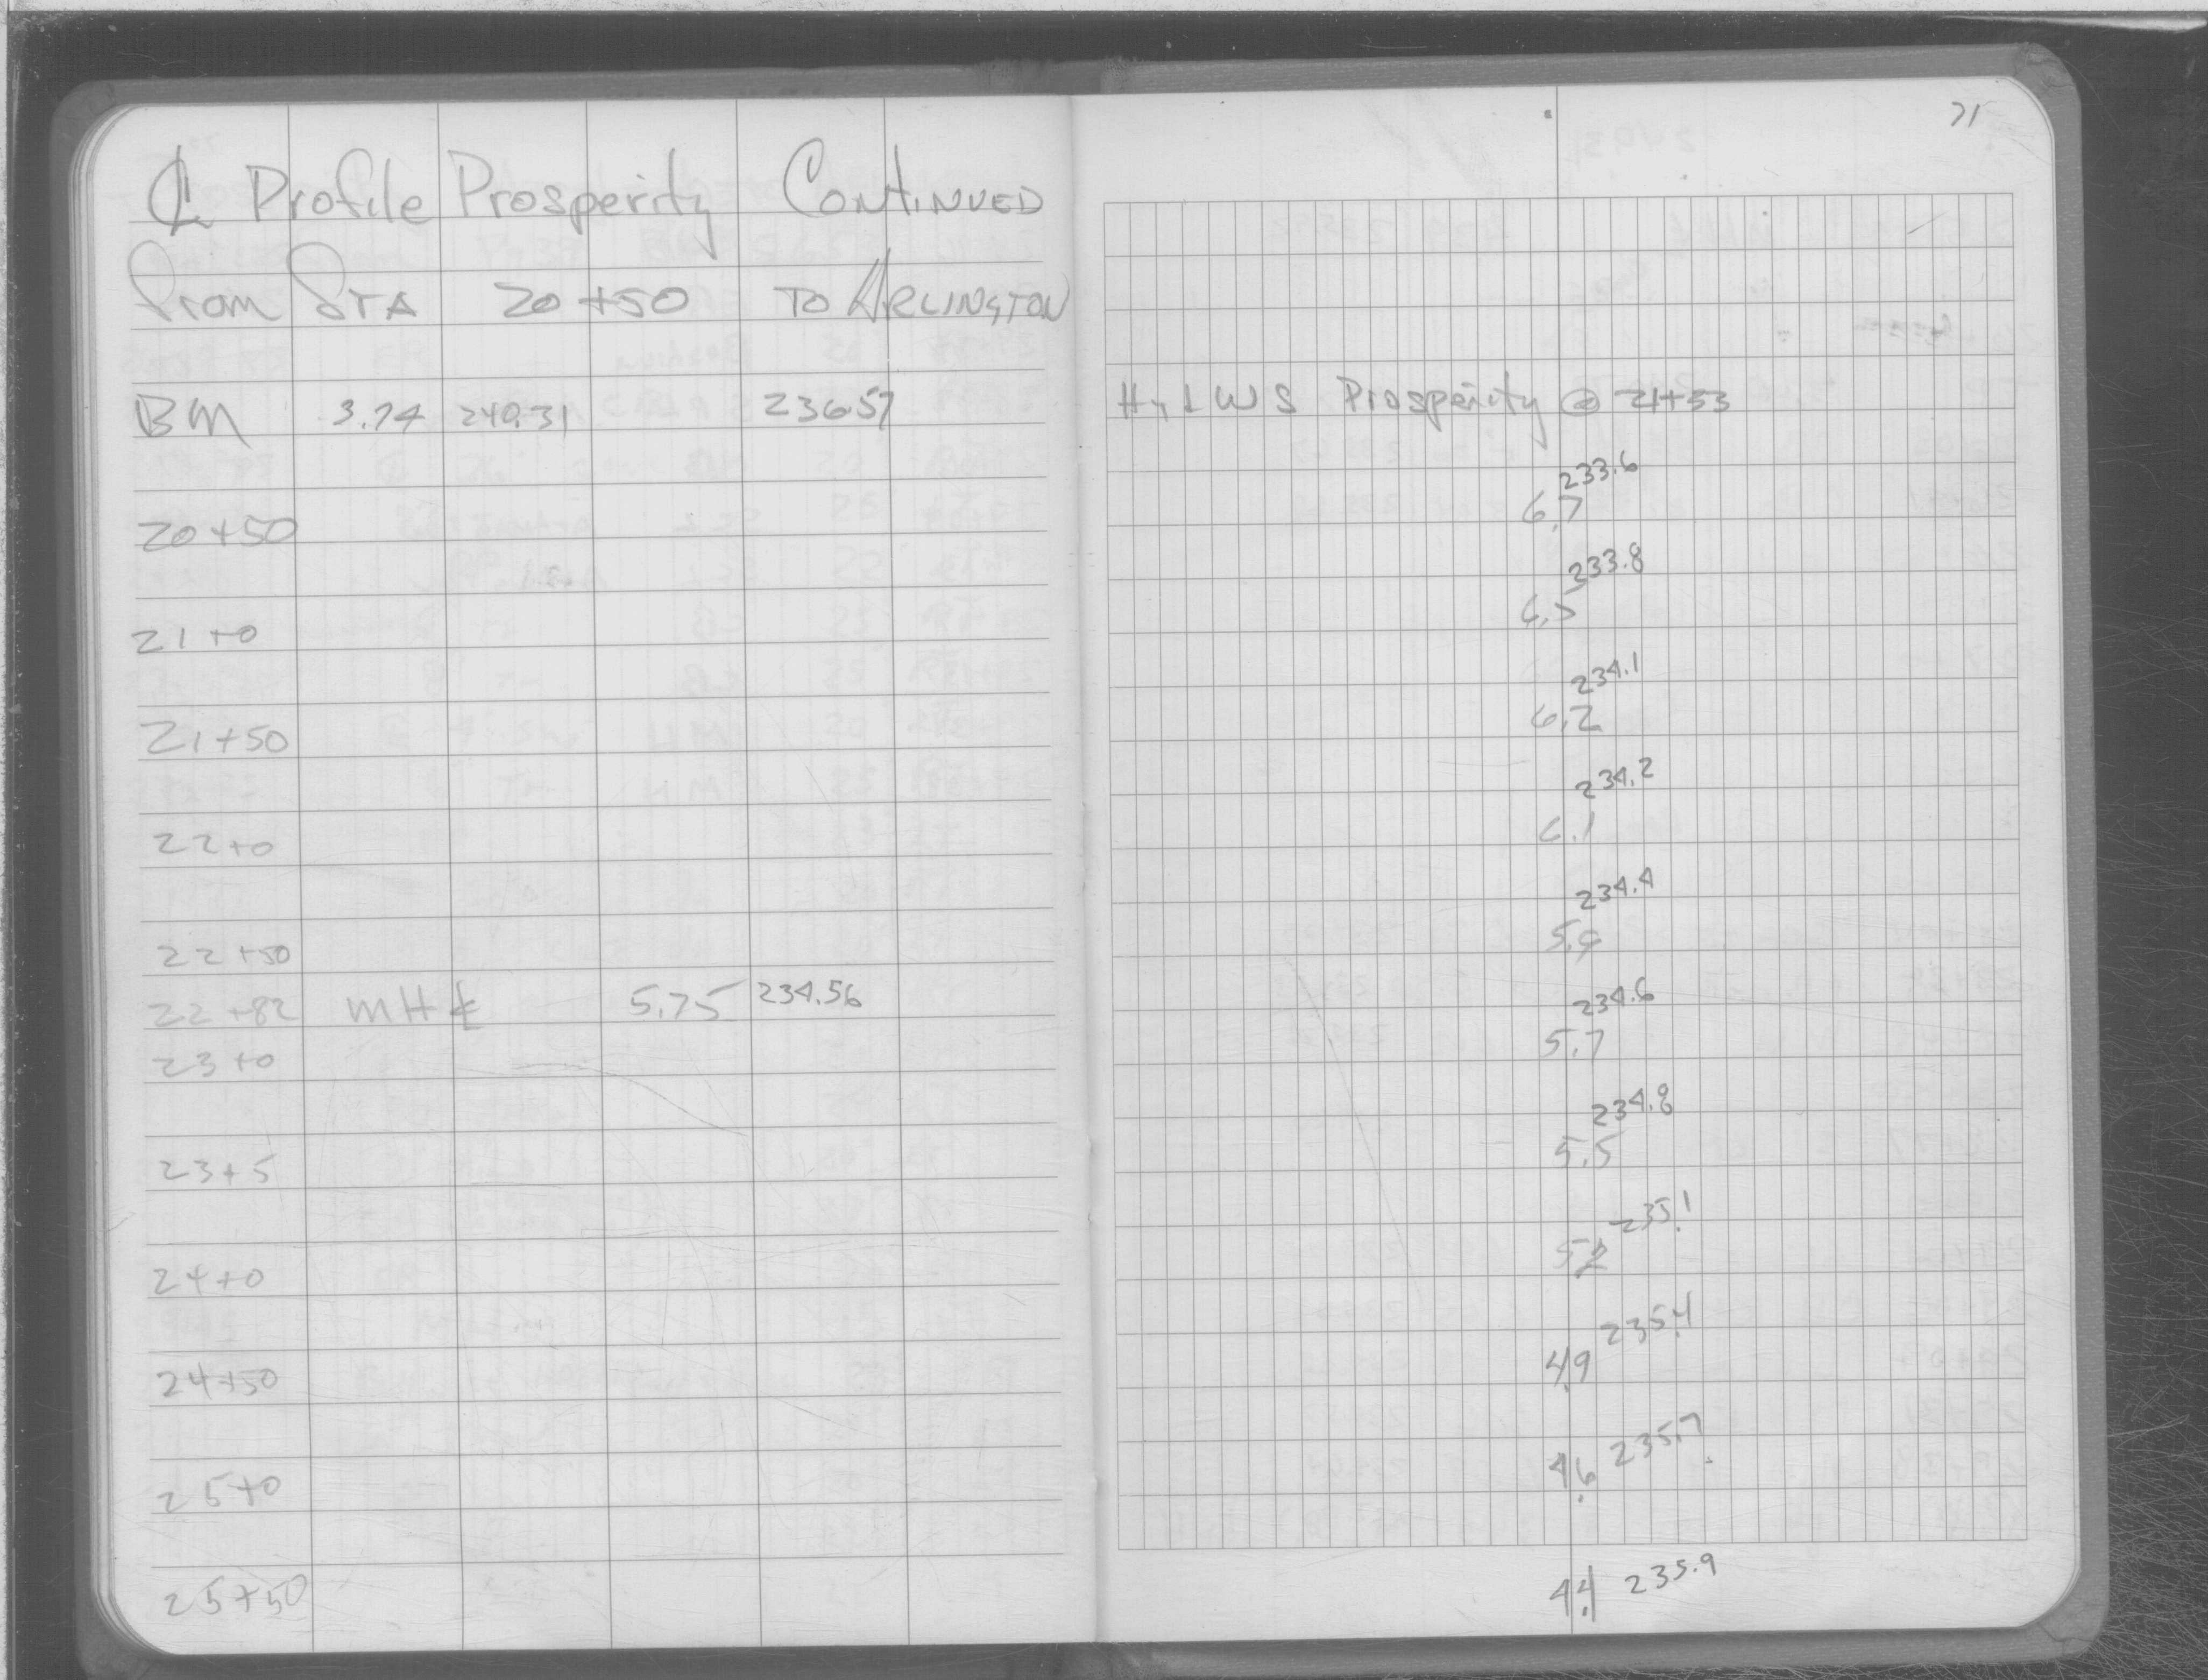 71
℄ Profile Prosperity CONTINUED
From STA 20+50 TO ARLINGTON
BM 3.74 240.31 236.57 Hyd W S Prosperity @ 21+53
233.6
20+50 6.7
233.8
21+0 6.5
234.1
21+50 6.2
234.2
22+0 6.1
234.4
22+50 5.9
22+82 MH ℄ 5.75 234.56 234.6
23+0 5.7
234.8
23+5 5.5
235.1
24+0 5.2
235.4
24+50 4.9
25+0 4.6 235.7
25+50 4.4 235.9